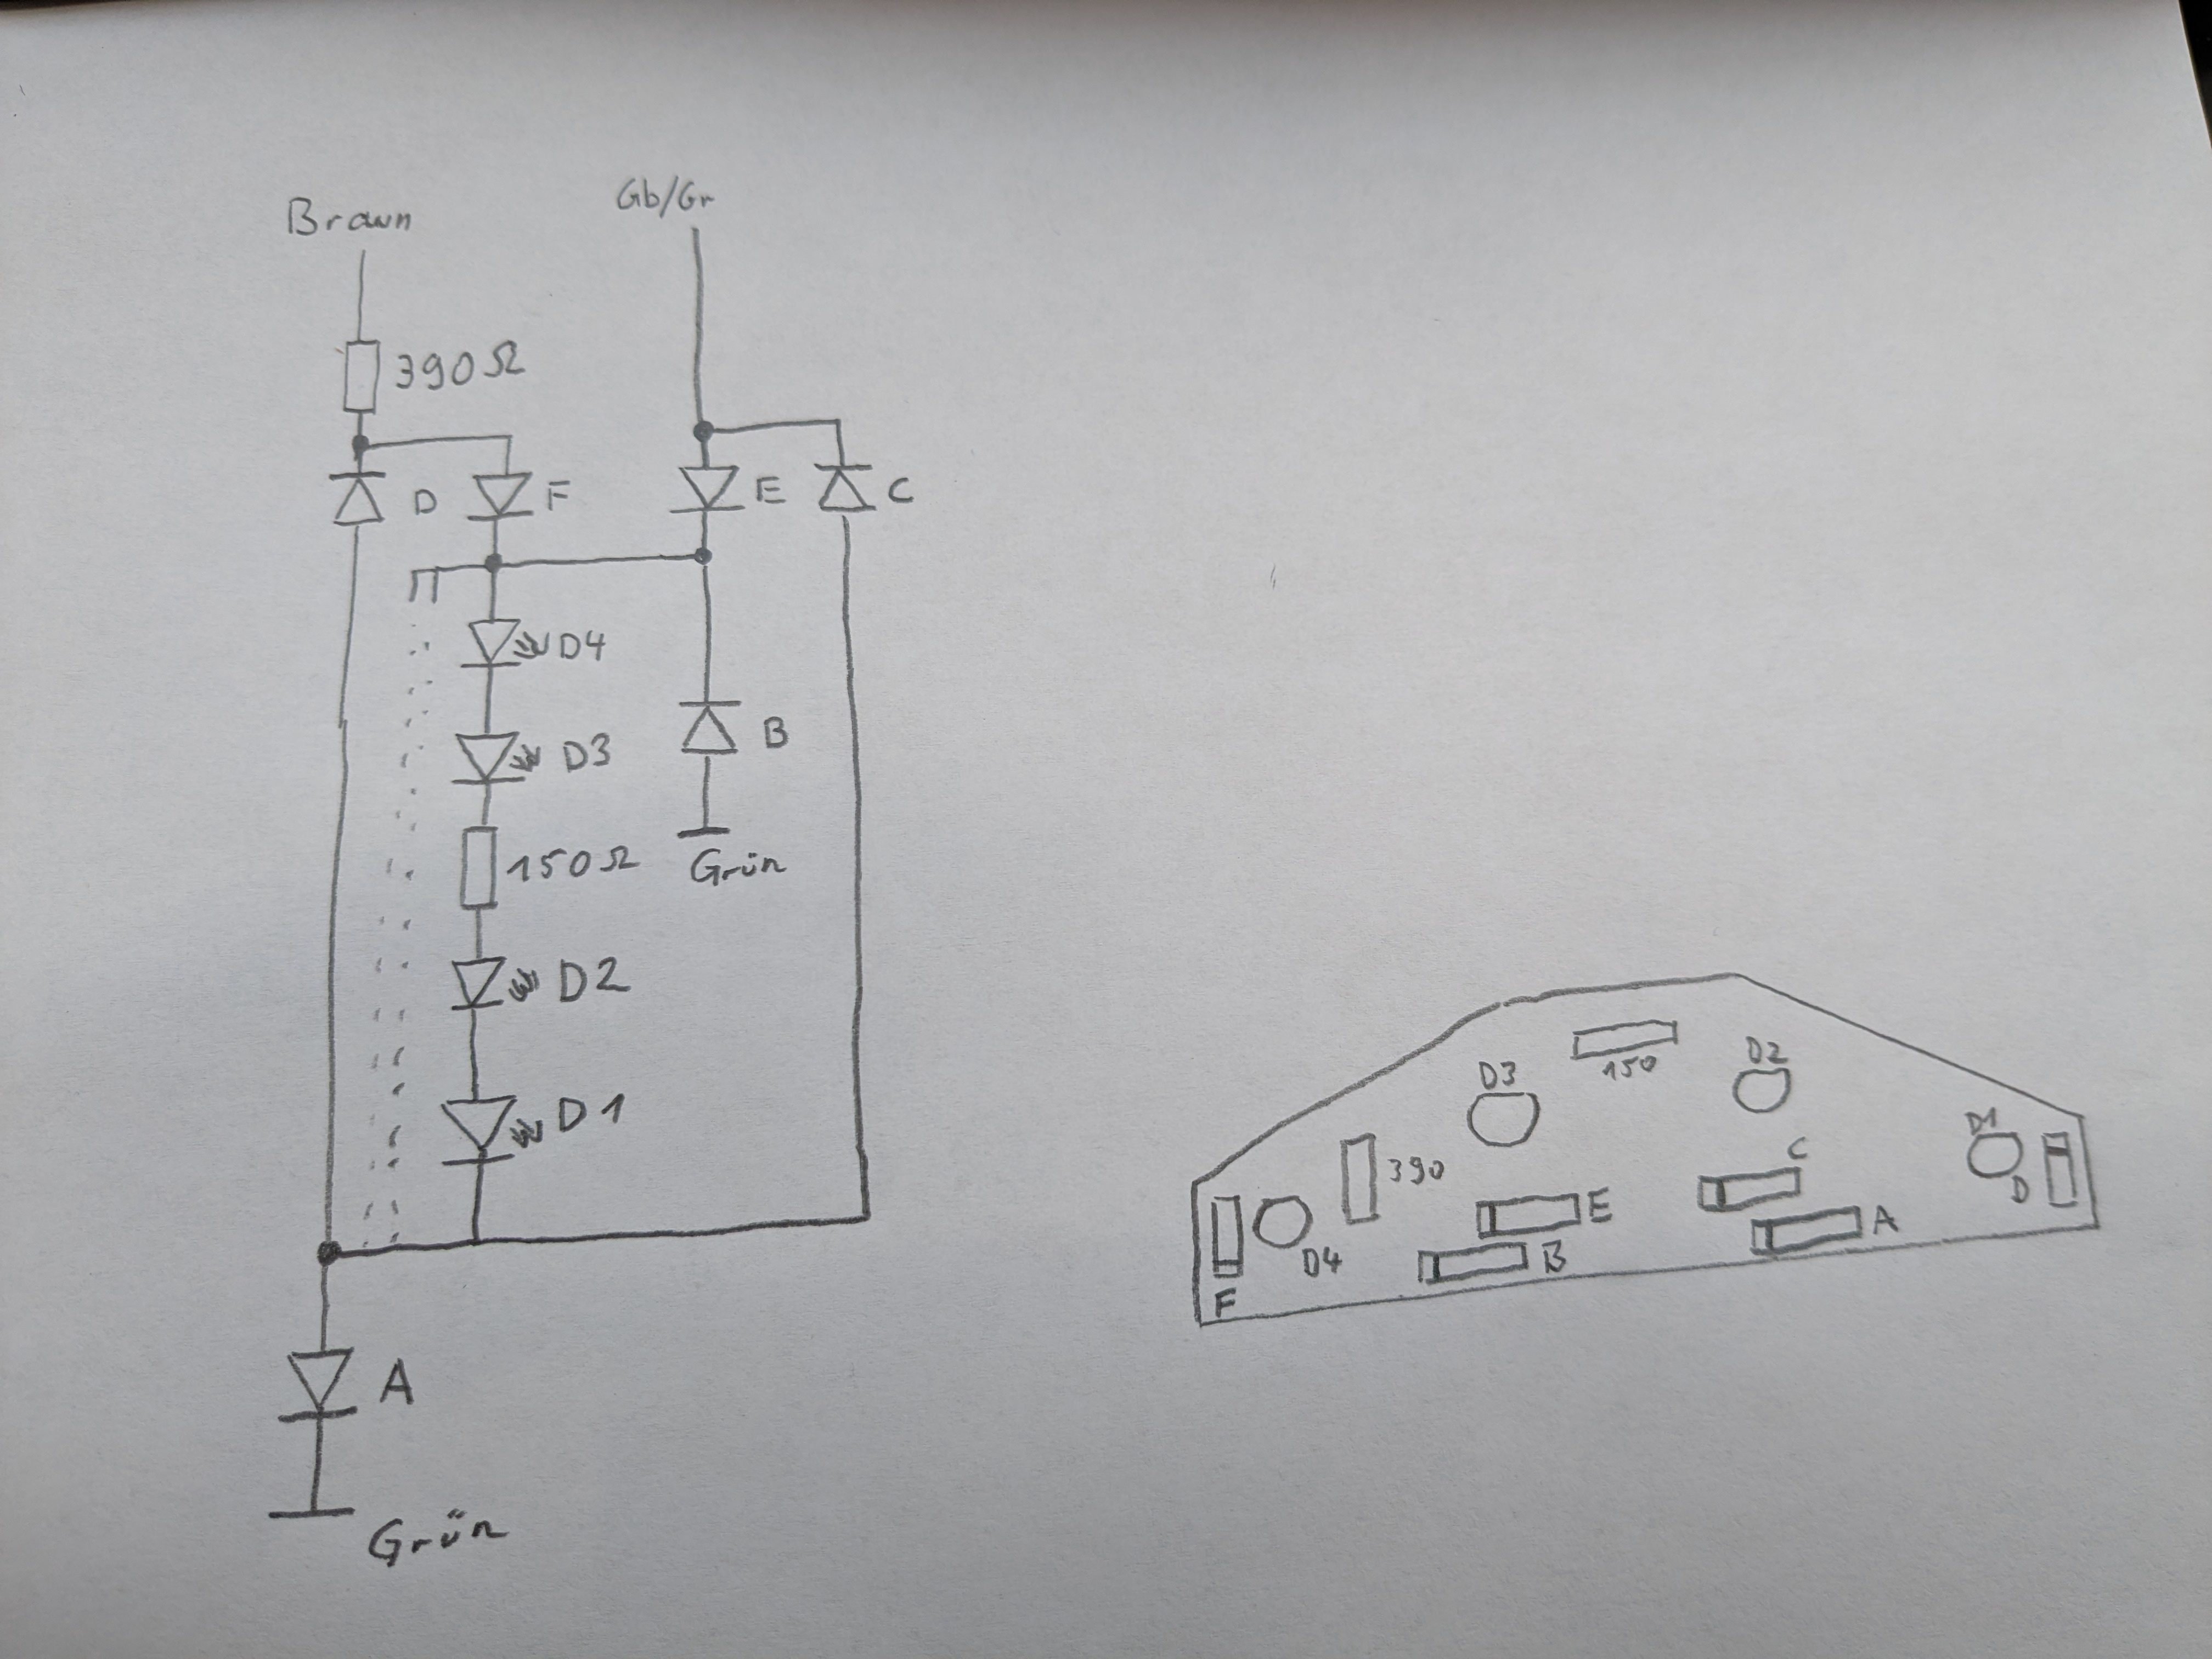 Braun
Gb/Gr
390Ω
D
F
E
C
D4
D3
B
150Ω
Grün
D2
D1
A
Grün
150
D3
D2
390
D4
F
E
B
C
A
D1
D